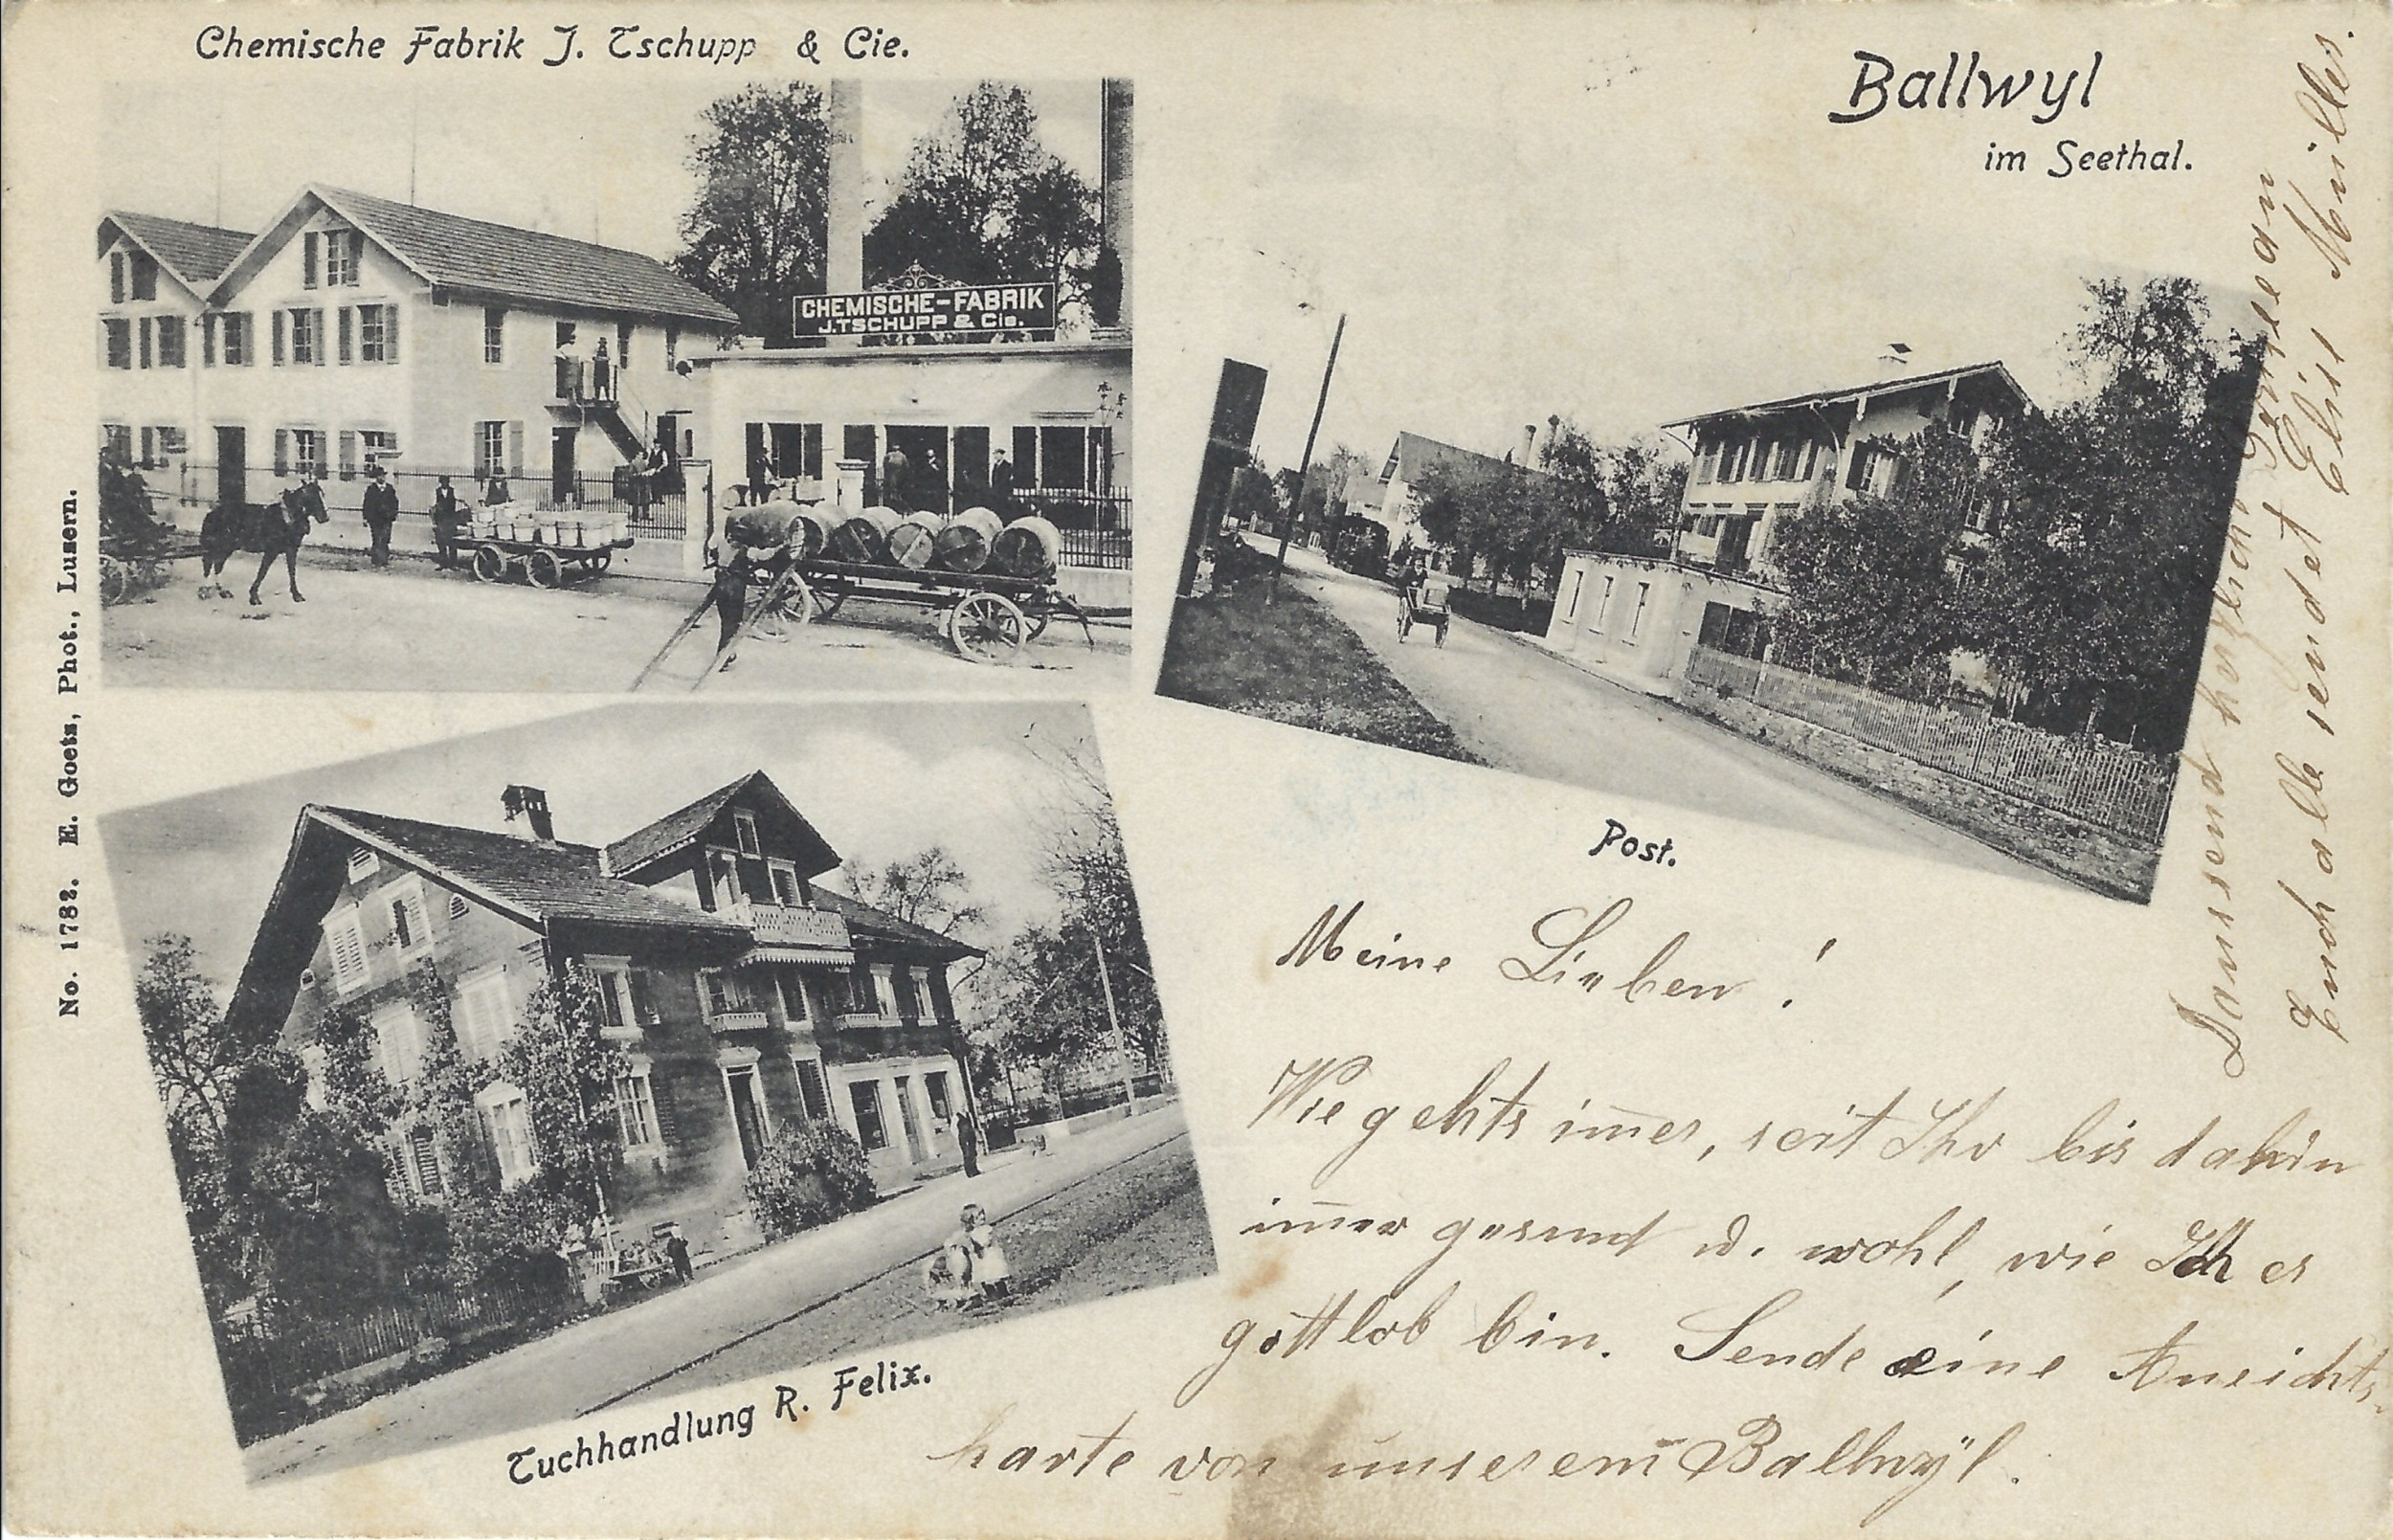 Chemische Fabrik J. Tschupp & Cie.
Ballwyl
im Seethal.
CHEMISCHE-FABRIK
J. TSCHUPP & Cie.
No. 1782. E. Goetz, Phot., Luzern.
Post.
Tuchhandlung R. Felix.
Meine Lieben!
Wie gehts im̅er, seit Ihr bis dahin
im̅er gesund u. wohl, wie Ich es
gottlob bin. Sende eine Ansichts-
karte von unserem Ballwÿl.
Tausend herzliche Grüsse an
Euch alle sendet Elise Müller.